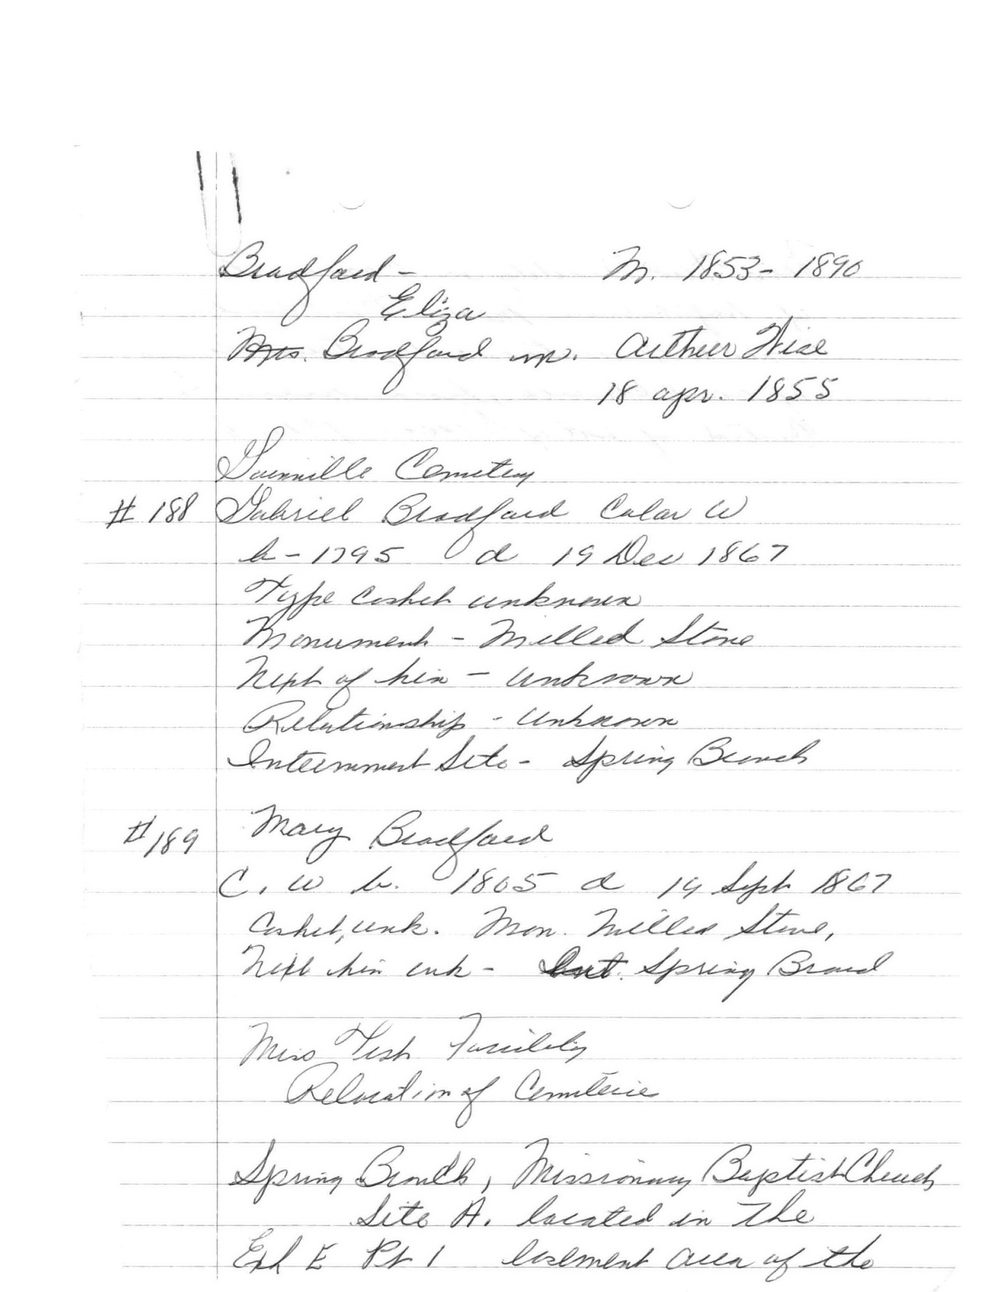 Bradford - M. 1853 - 1890
Eliza
Mrs. Bradford m. Arthur Wise
18 apr. 1855
Gainville Cemetery
# 188 Gabriel Bradford Color W
b - 1795 d 19 Dec 1867
Type casket unknown
Monument - Milled Stone
Next of kin - unknown
Relationship - unknown
Internment Site - Spring Branch
# 189 Mary Bradford
C. W b. 1805 d 19 Sept 1867
Casket, unk. Mon. Milled Stone,
Next kin unk - Int. Spring Brand
Miss Test Facility
Relocation of Cemeterie
Spring Branch, Missionary Baptist Church
Site A. located in The
E Pt 1 easement area of the